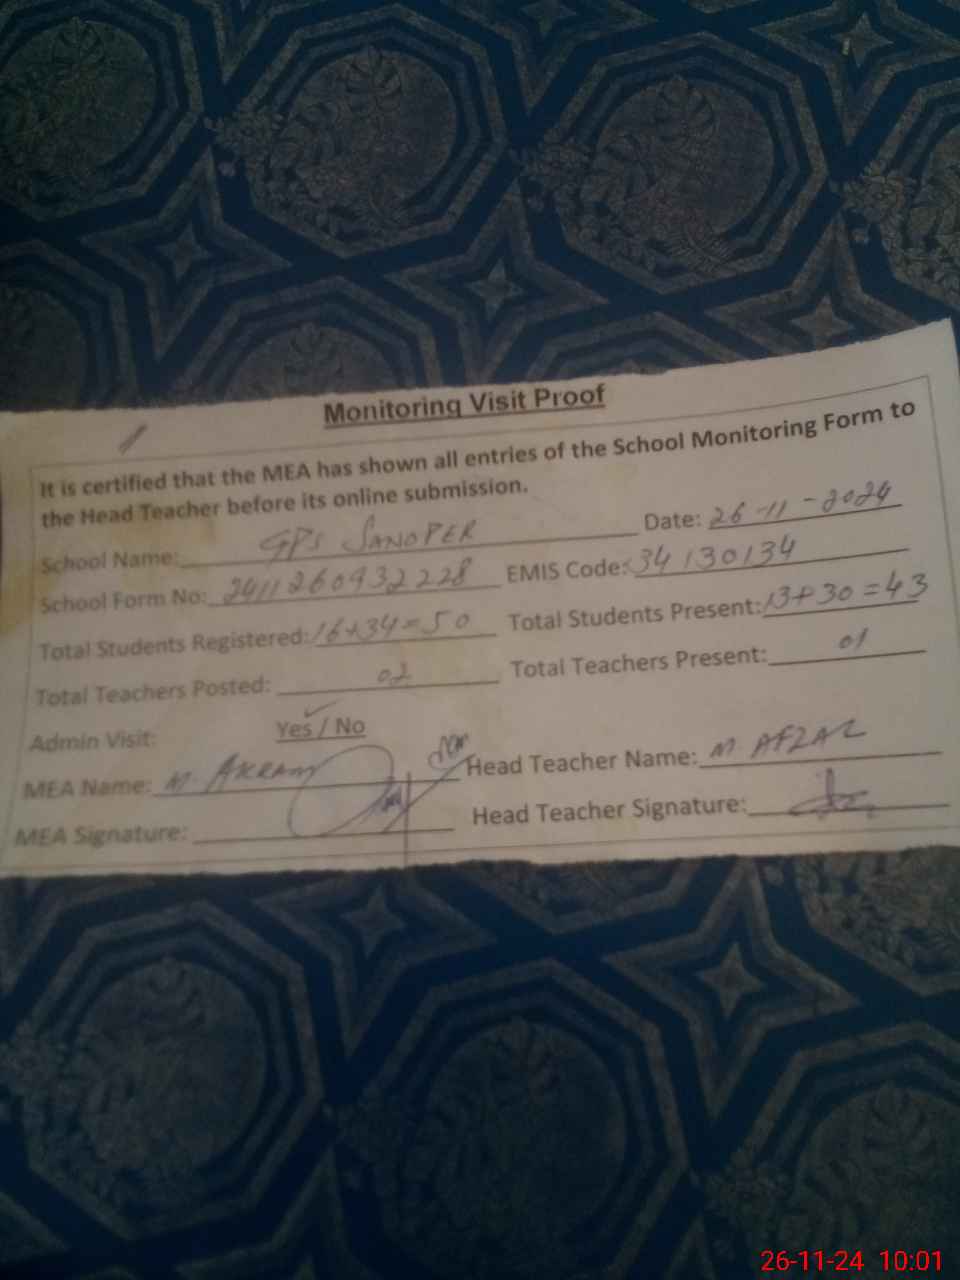 Monitoring Visit Proof
It is certified that the MEA has shown all entries of the School Monitoring Form to
the Head Teacher before its online submission.
School Name: GPS SANOPER Date: 26-11-2024
School Form No: 2411260932228 EMIS Code: 34130134
Total Students Registered: 16+34=50 Total Students Present: 13+30=43
Total Teachers Posted: 02 Total Teachers Present: 01
Admin Visit: Yes / No
MEA Name: M. AKRAM Head Teacher Name: M AFZAL
MEA Signature: Head Teacher Signature:
26-11-24 10:01